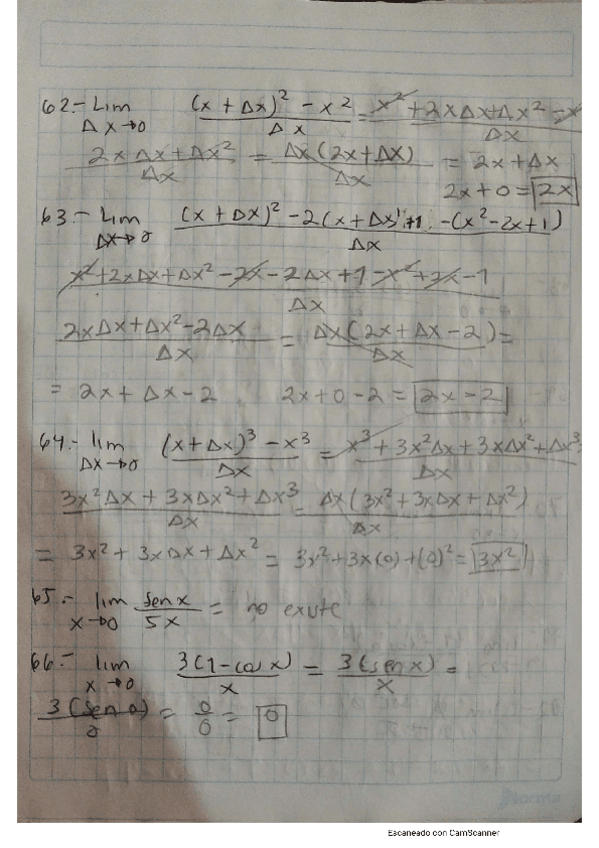 62.- Lim (x + Δx)² - x² = x² + 2xΔx + Δx² - x
Δx→0 Δx Δx
2xΔx + Δx² = Δx(2x+Δx) = 2x+Δx
Δx Δx 2x+0=2x
63.- Lim (x + Δx)² - 2(x + Δx)+1 - (x² - 2x + 1)
Δx→0 Δx
x² + 2xΔx + Δx² - 2x - 2Δx + 1 - x² + 2x - 1
Δx
2xΔx + Δx² - 2Δx = Δx(2x + Δx - 2) =
Δx Δx
= 2x + Δx - 2 2x + 0 - 2 = 2x - 2
64.- lim (x + Δx)³ - x³ = x³ + 3x²Δx + 3xΔx² + Δx³
Δx→0 Δx Δx
3x²Δx + 3xΔx² + Δx³ = Δx(3x² + 3xΔx + Δx²)
Δx Δx
= 3x² + 3xΔx + Δx² = 3x² + 3x(0) + (0)² = 3x²
65.- lim sen x = no existe
x→0 5x
66.- lim 3(1 - cos x) = 3(sen x) =
x→0 x x
3(sen 0) = 0 = 0
0 0
Norma
Escaneado con CamScanner